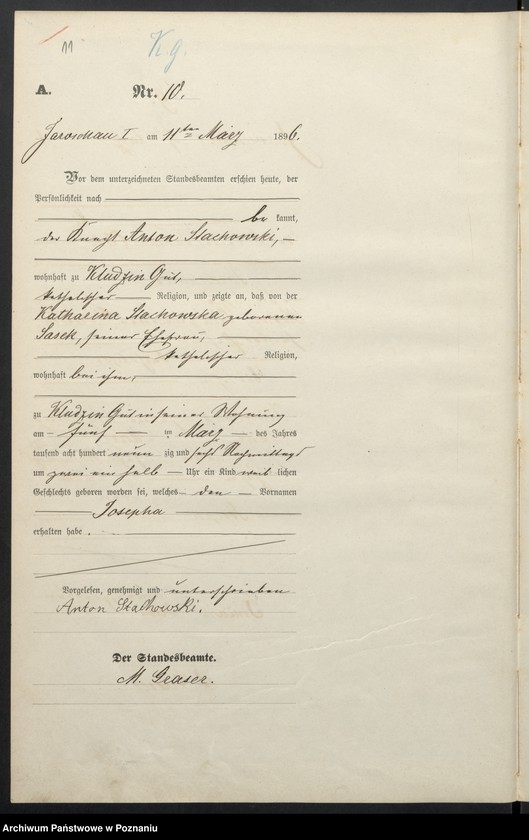 11 Kg.
A. Nr. 10.
Jaroschau I am 11ten März 1896.
Vor dem unterzeichneten Standesbeamten erschien heute, der
Persönlichkeit nach
be kannt,
der Knecht Anton Stachowski,
wohnhaft zu Kludzin Gut,
katholischer Religion, und zeigte an, daß von der
Katharina Stachowska geborenen
Sasek, seiner Ehefrau,
katholischer Religion,
wohnhaft bei ihm,
zu Kludzin Gut in seiner Wohnung
am fünf ten März des Jahres
tausend acht hundert neun zig und sechs Nachmittags
um zwei ein halb Uhr ein Kind weib lichen
Geschlechts geboren worden sei, welches den Vornamen
Josepha
erhalten habe.
Vorgelesen, genehmigt und unterschrieben
Anton Stachowski.
Der Standesbeamte.
M. Graser.
Archiwum Państwowe w Poznaniu